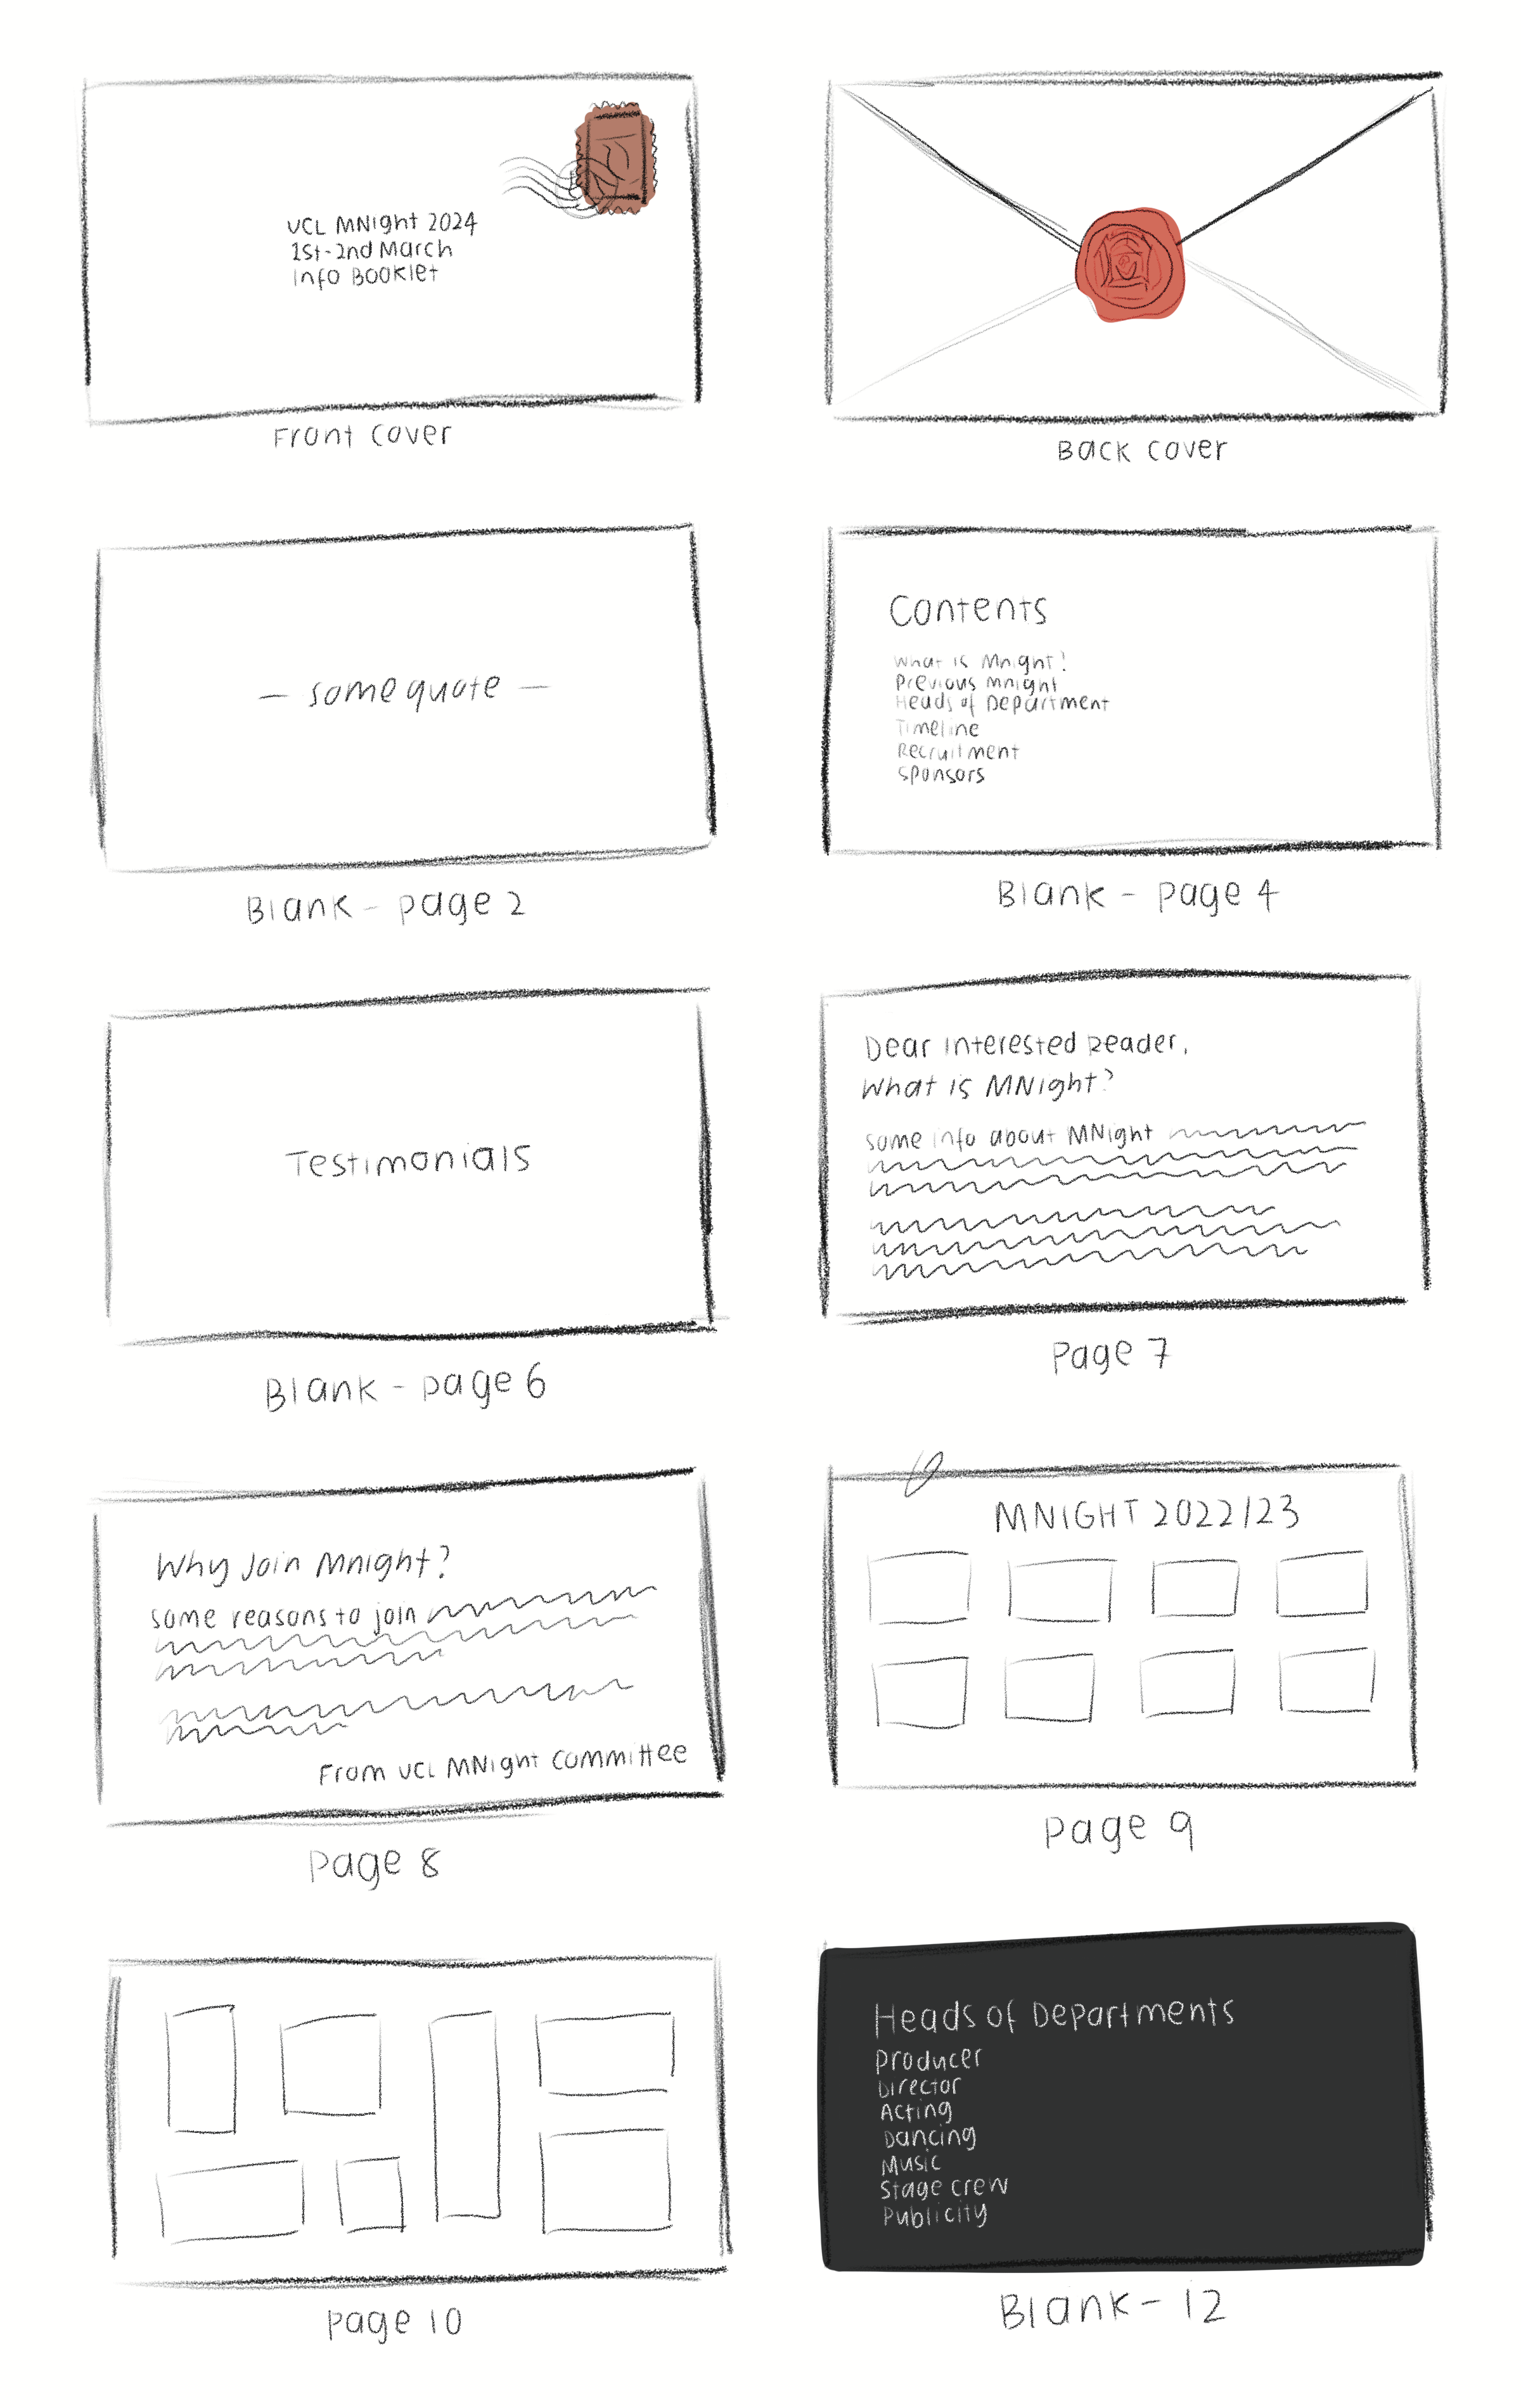 UCL MNight 2024
1st-2nd March
Info Booklet
Front cover
Back cover
- some quote -
Blank - page 2
Contents
What is Mnight?
Previous Mnight
Heads of Department
Timeline
Recruitment
Sponsors
Blank - page 4
Testimonials
Blank - page 6
Dear Interested Reader,
What is MNight?
some info about MNight
Page 7
Why Join Mnight?
some reasons to join
From UCL MNight Committee
Page 8
MNIGHT 2022/23
Page 9
Page 10
Heads of Departments
Producer
Director
Acting
Dancing
Music
Stage Crew
Publicity
Blank - 12